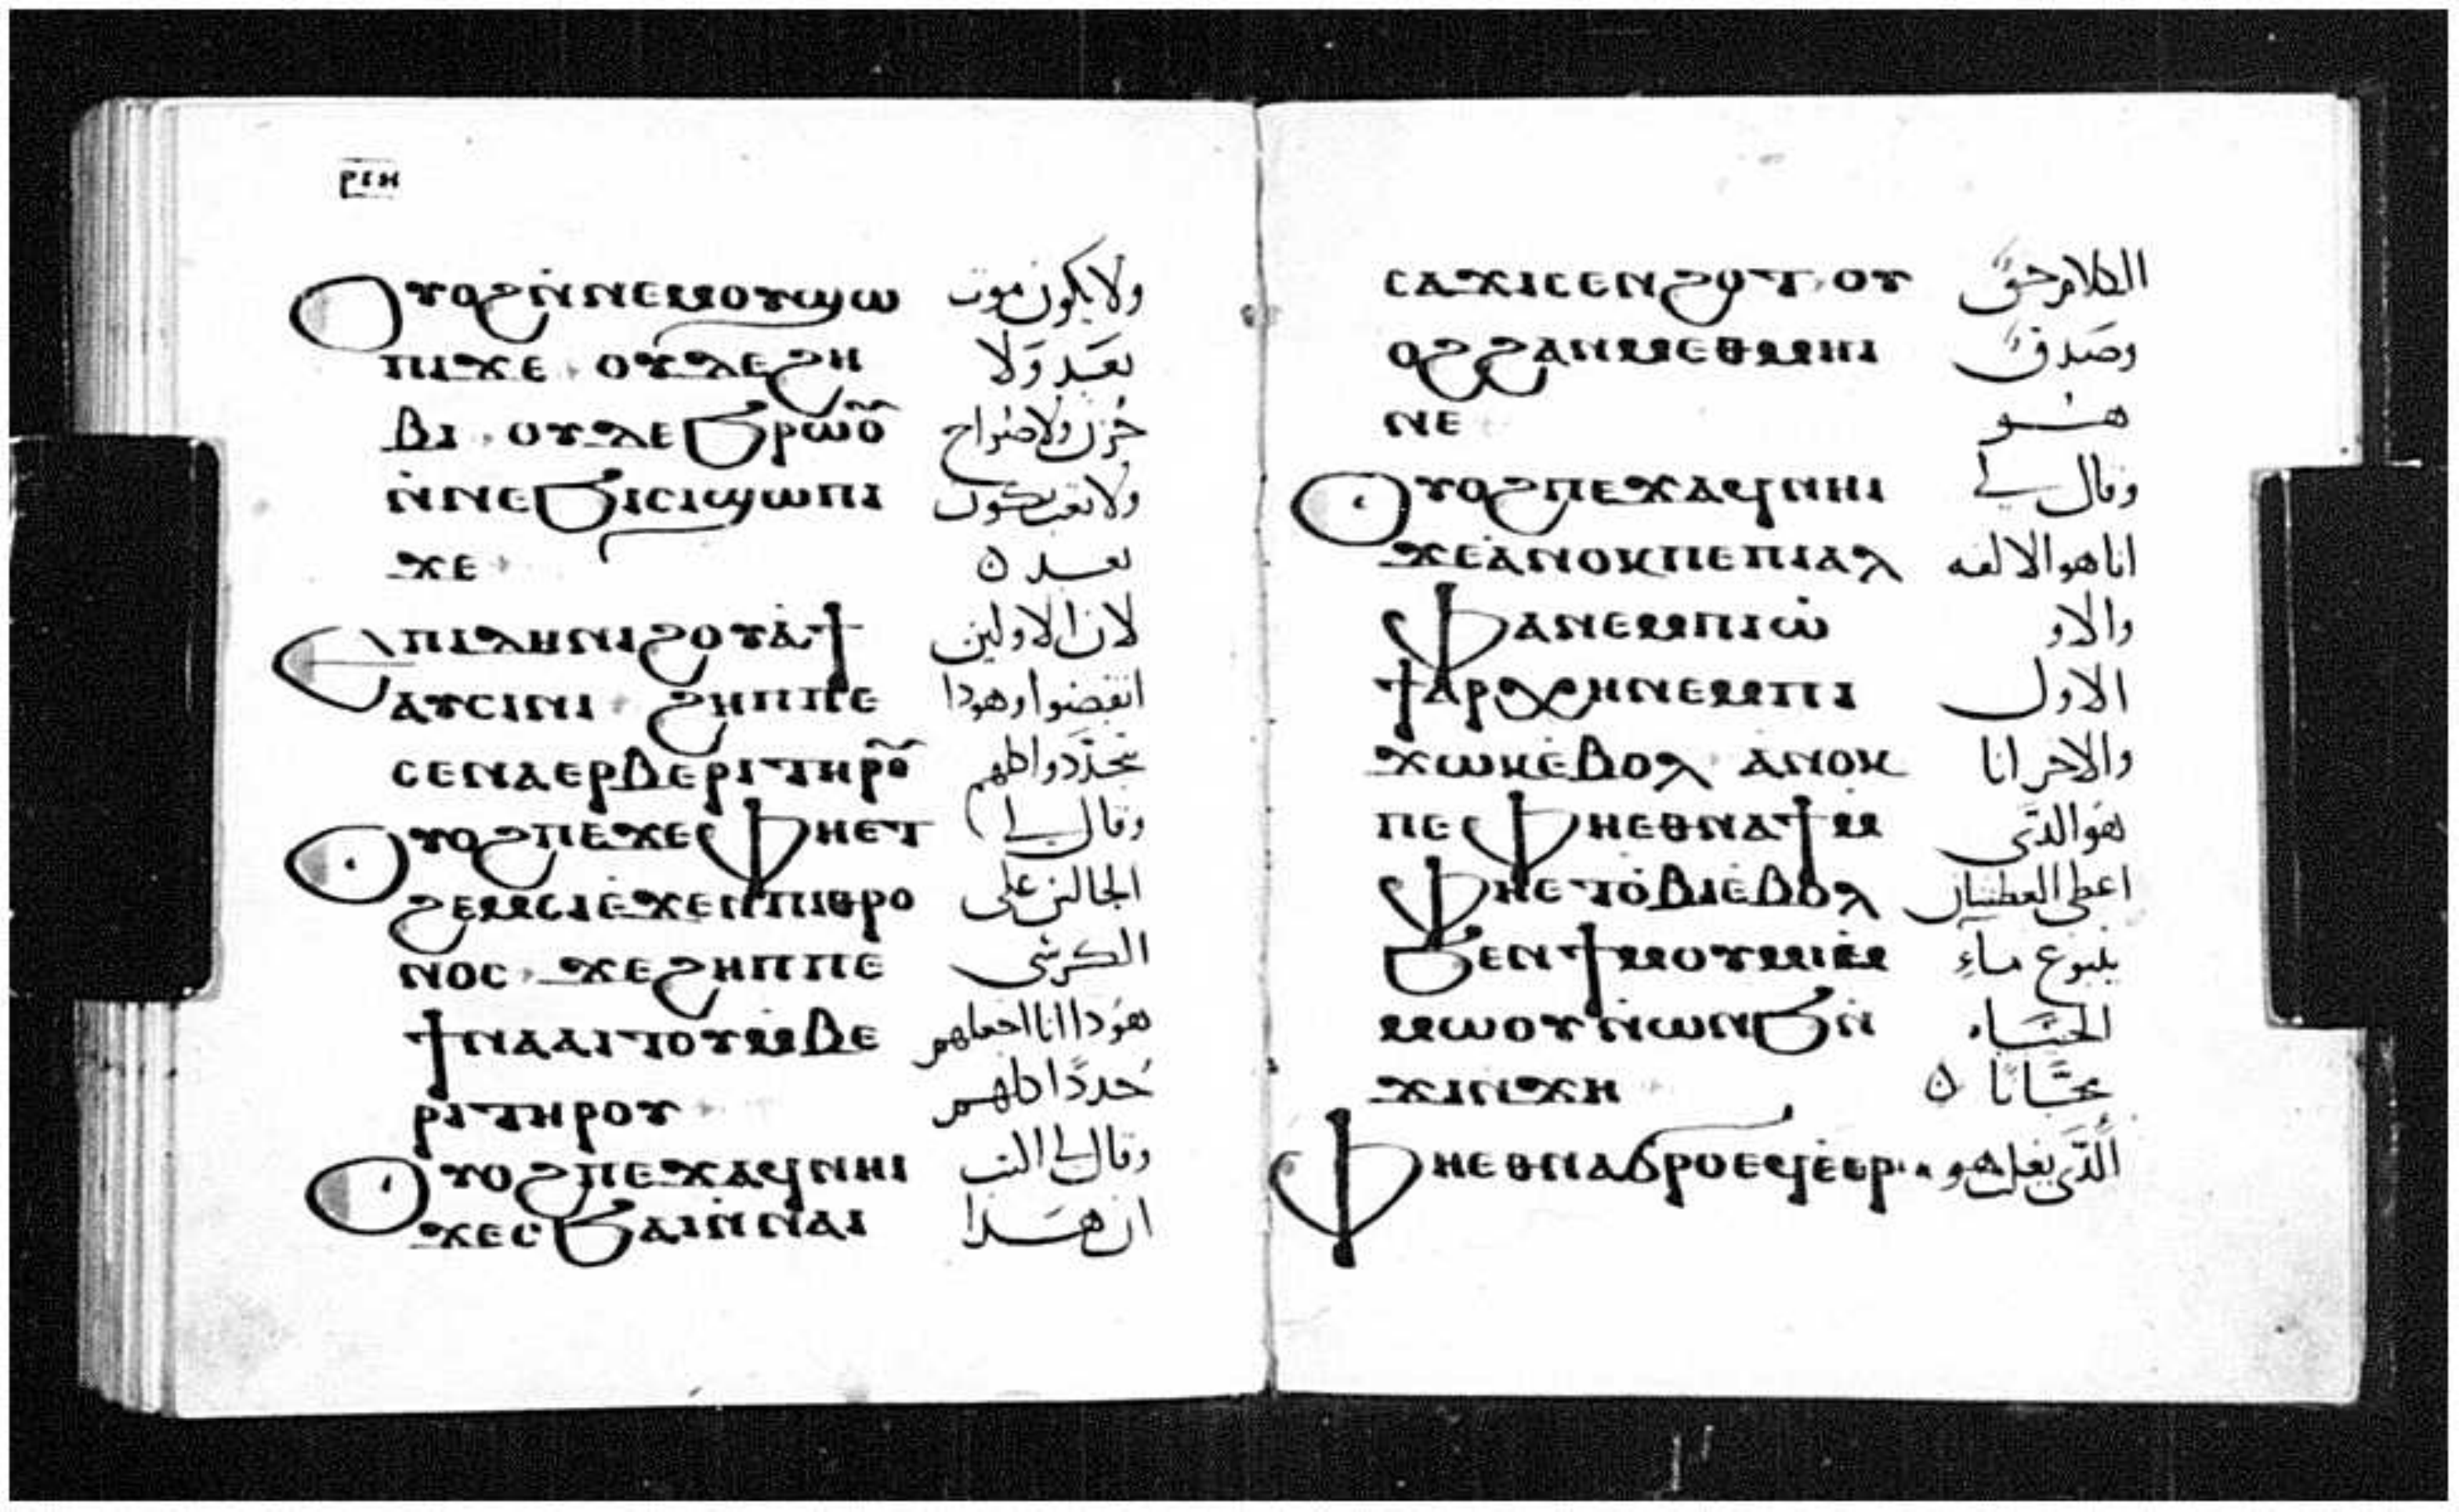 ⲣⲓⲏ
ⲟⲩⲟϩ ⲛ̇ⲛⲉⲙⲟⲩ ϣⲱ ولا يكون موت
ⲡⲓ ϫⲉ ⲟⲩⲇⲉ ϩⲏ بعد ولا
ⲃⲓ ⲟⲩⲇⲉ ϧⲣⲱⲟ̅ حزن ولا صراخ
ⲛ̇ⲛⲉ ϧⲓⲥⲓ ϣⲱⲡⲓ ولا تعب يكون
ϫⲉ بعد
ⲉⲡⲓⲇⲏ ⲛⲓϩⲟⲩⲁ̇ϯ لان الاولين
ⲁⲩⲥⲓⲛⲓ ϩⲏⲡⲡⲉ انقضوا وهودا
ⲥⲉⲛⲁⲉⲣⲃⲉⲣⲓ ⲧⲏⲣⲟ̅ يتجددوا كلهم
ⲟⲩⲟϩ ⲡⲉϫⲉ ⲫⲏⲉⲧ وقال لى
ϩⲉⲙⲥⲓ ⲉ̇ϫⲉⲛ ⲡⲓⲑⲣⲟ الجالس على
ⲛⲟⲥ ϫⲉ ϩⲏⲡⲡⲉ الكرسى
ϯⲛⲁⲁⲓⲧⲟⲩ ⲙ̇ⲃⲉ هودا انا اجعلهم
ⲣⲓ ⲧⲏⲣⲟⲩ جددًا كلهم
ⲟⲩⲟϩ ⲡⲉϫⲁϥ ⲛⲏⲓ وقال لى اكتب
ϫⲉ ⲥϧⲁⲓ ⲛ̇ⲛⲁⲓ ان هذا
ⲥⲁϫⲓ ⲥⲉⲛϩⲟⲧ ⲟⲩ الكلام حق
ⲟϩ ϩⲁⲛⲙⲉⲑⲙⲏⲓ وصدق
ⲛⲉ هو
ⲟⲩⲟϩ ⲡⲉϫⲁϥ ⲛⲏⲓ وقال لى
ϫⲉ ⲁⲛⲟⲕ ⲡⲉ ⲡⲓⲁⲗ انا هو الالفه
ⲫⲁ ⲛⲉⲙ ⲡⲓⲱ̇ والاو
ϯⲁⲣⲭⲏ ⲛⲉⲙ ⲡⲓ الاول
ϫⲱⲕ ⲉ̇ⲃⲟⲗ ⲁⲛⲟⲕ والاخر انا
ⲡⲉ ⲫⲏⲉⲑⲛⲁϯ ⲙ̇ هو الذى
ⲫⲏⲉⲧⲟ̇ⲃⲓ ⲉ̇ⲃⲟⲗ اعطى العطشان
ϧⲉⲛ ϯⲙⲟⲩⲙⲓ ⲙ̇ ينبوع ماء
ⲙⲱⲟⲩ ⲛ̇ⲱⲛϧ ⲛ̇ الحياه
ϫⲓⲛϫⲏ مجانا
ⲫⲏⲉⲑⲛⲁϭⲣⲟ ⲉϥⲉ̇ⲉⲣ الذى يغلب هو